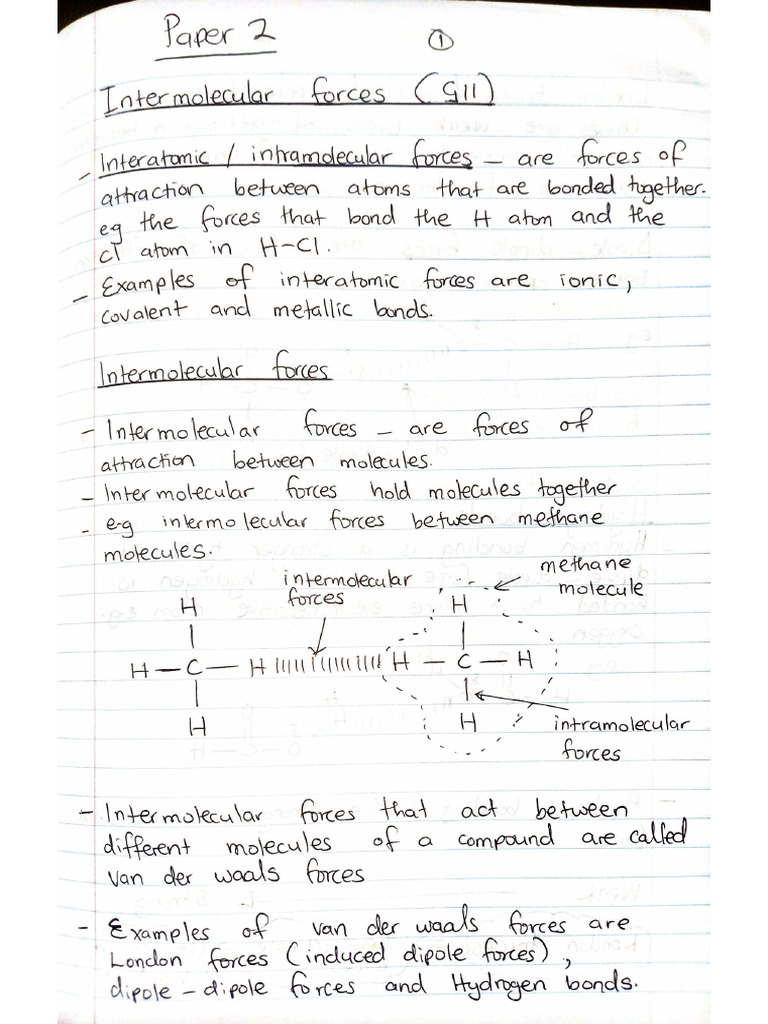 Paper 2
①
Intermolecular forces (G11)
- Interatomic / intramolecular forces - are forces of
attraction between atoms that are bonded together.
eg the forces that bond the H atom and the
Cl atom in H-Cl.
- Examples of interatomic forces are ionic,
covalent and metallic bonds.
Intermolecular forces
- Intermolecular forces - are forces of
attraction between molecules.
- Intermolecular forces hold molecules together
- e.g intermolecular forces between methane
molecules.
intermolecular
forces
methane
molecule
H H
H - C - H H - C - H
H H
intramolecular
forces
- Intermolecular forces that act between
different molecules of a compound are called
van der waals forces
- Examples of van der waals forces are
London forces (induced dipole forces),
dipole - dipole forces and Hydrogen bonds.